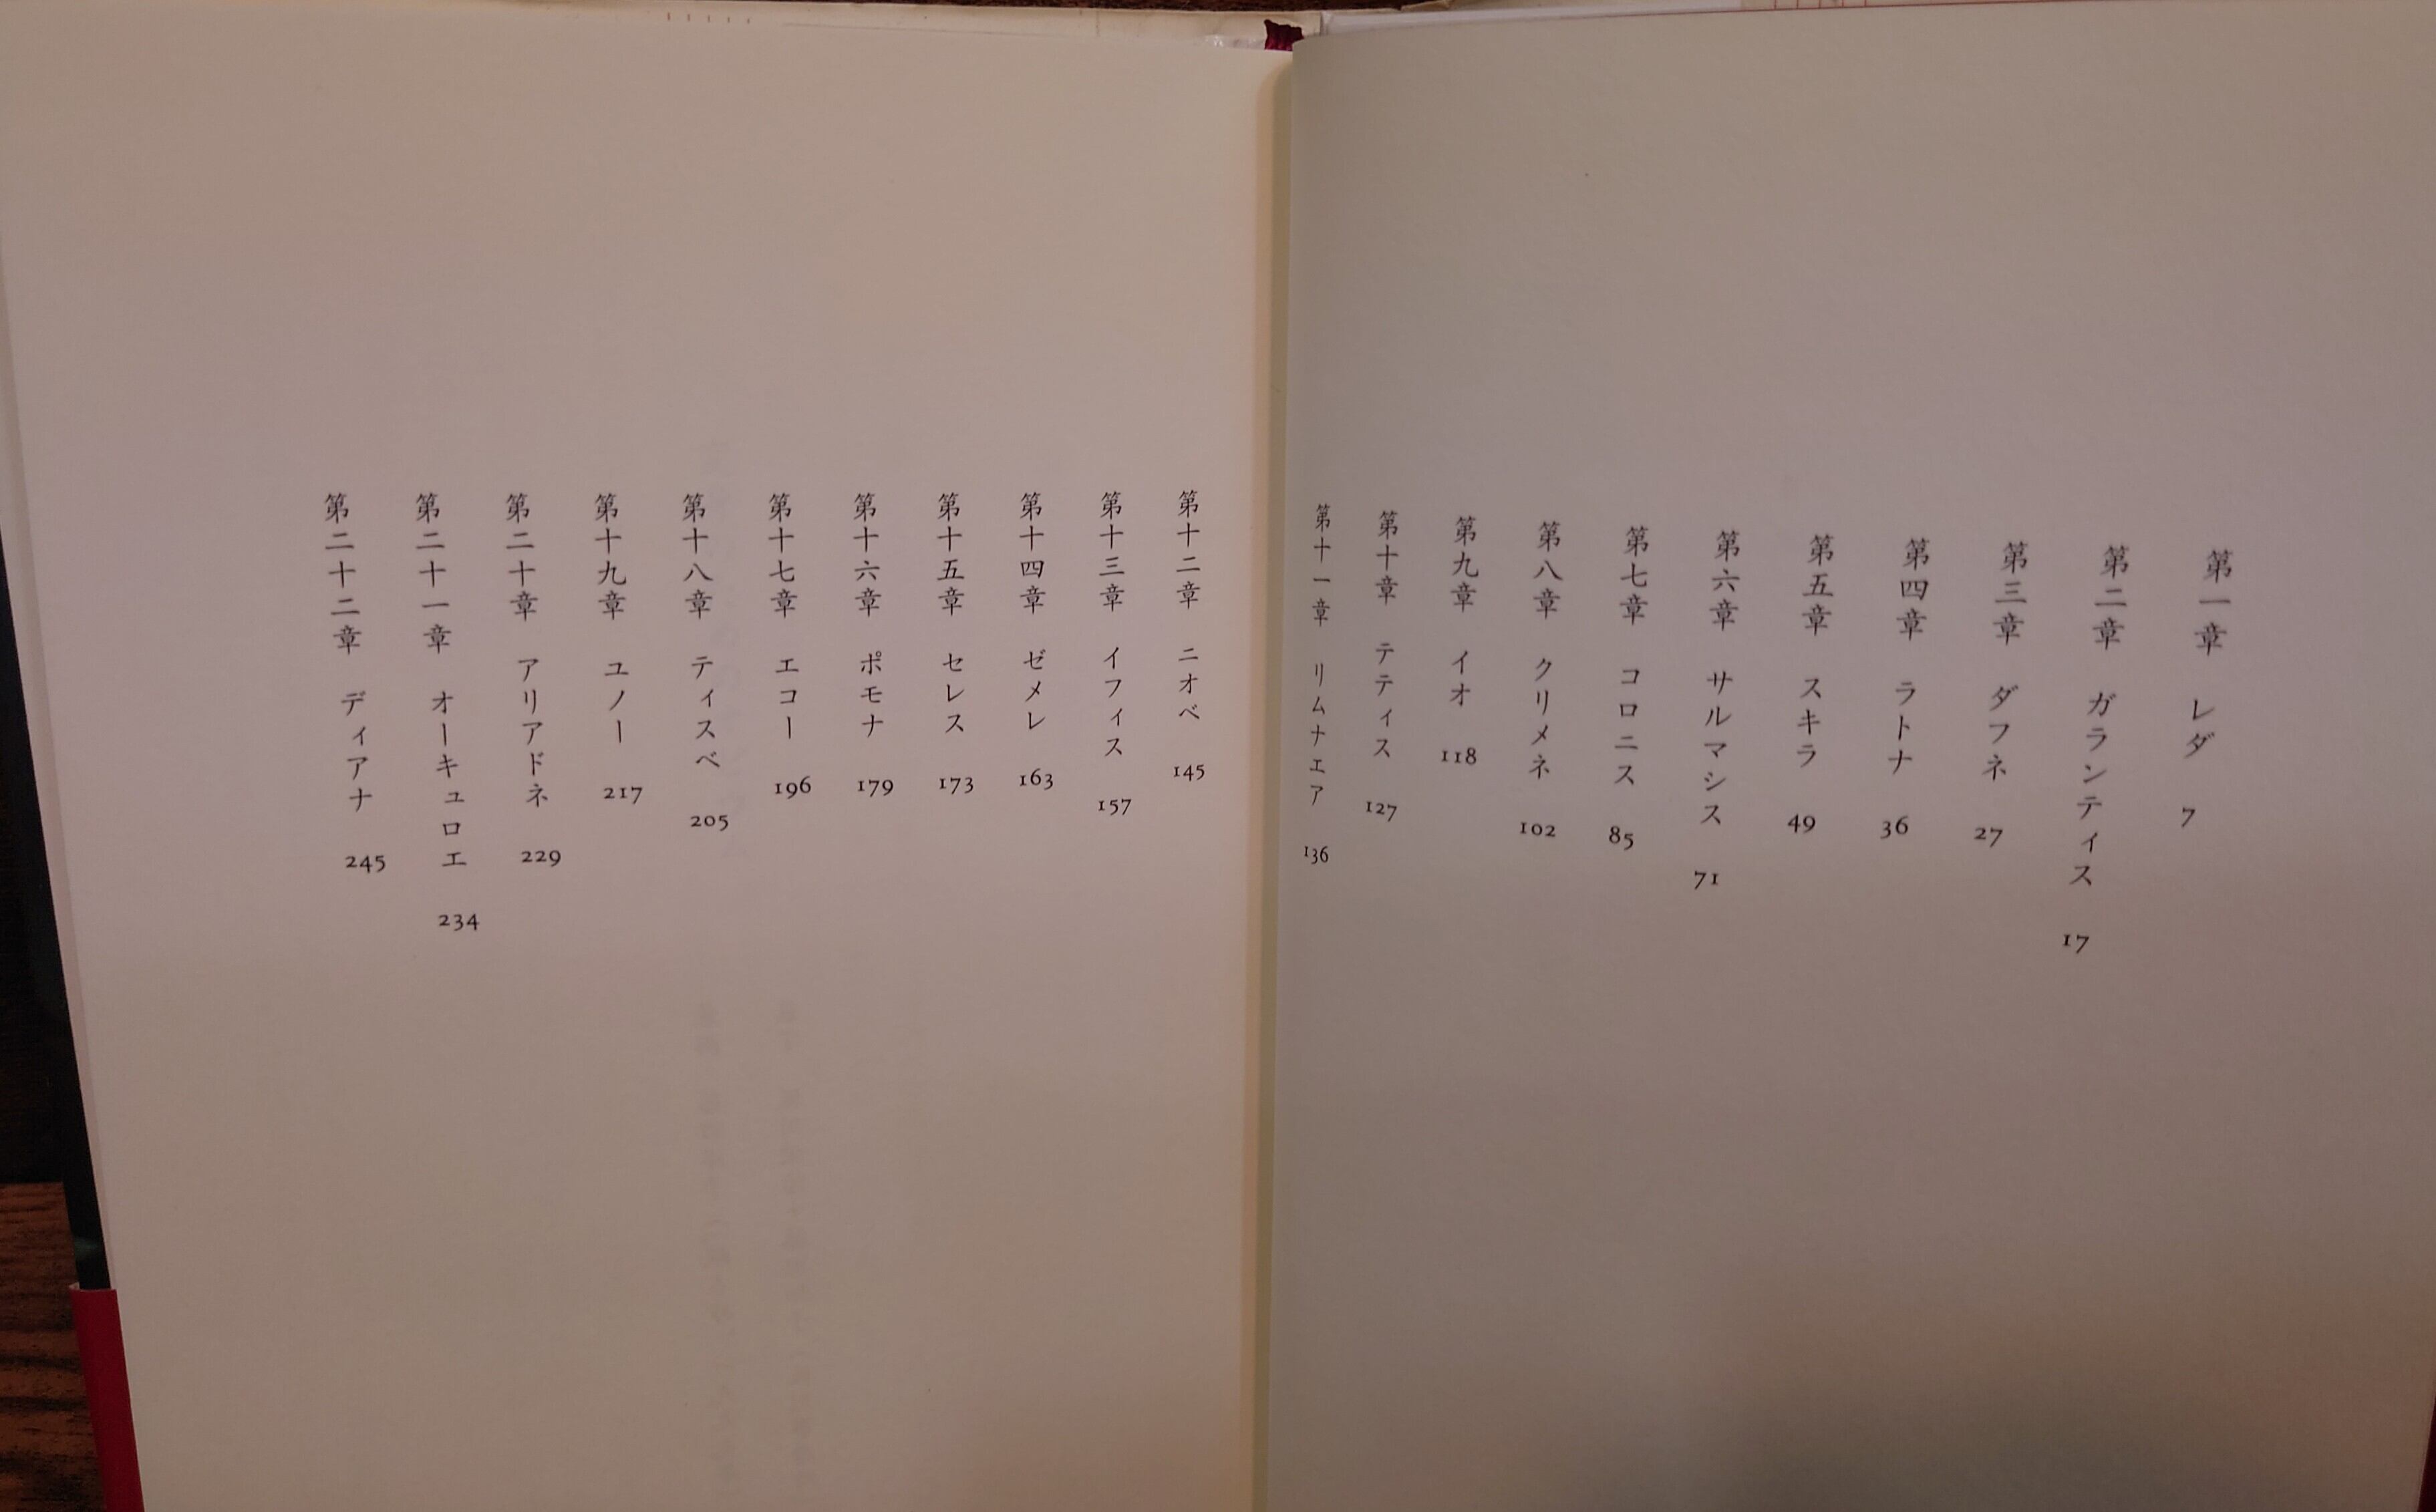 第一章 レダ 7
第二章 ガランティス 17
第三章 ダフネ 27
第四章 ラトナ 36
第五章 スキラ 49
第六章 サルマシス 71
第七章 コロニス 85
第八章 クリメネ 102
第九章 イオ 118
第十章 テティス 127
第十一章 リムナエア 136
第十二章 ニオベ 145
第十三章 イフィス 157
第十四章 ゼメレ 163
第十五章 セレス 173
第十六章 ポモナ 179
第十七章 エコー 196
第十八章 ティスベ 205
第十九章 ユノー 217
第二十章 アリアドネ 229
第二十一章 オーキュロエ 234
第二十二章 ディアナ 245